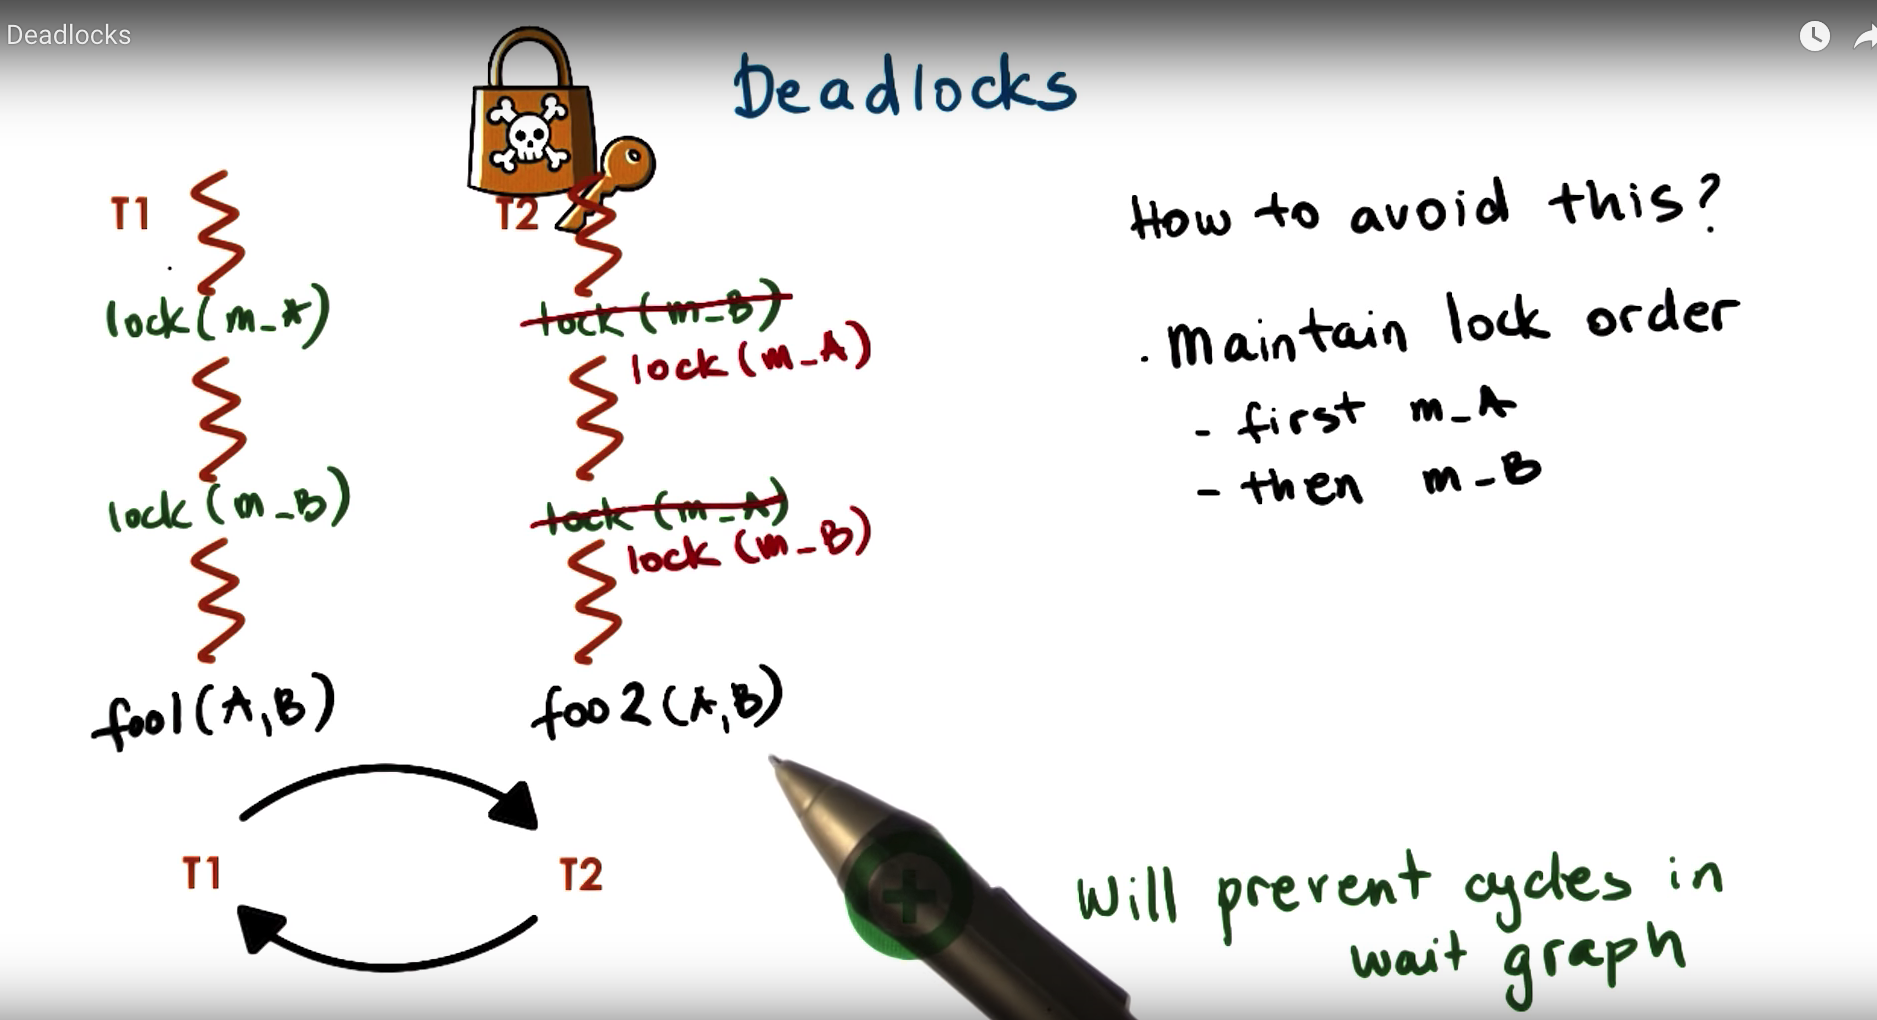 Deadlocks
Deadlocks
T1
T2
lock(m_A)
lock(m_B)
lock(m_A)
lock(m_B)
lock(m_A)
lock(m_B)
foo1(A,B)
foo2(A,B)
T1
T2
How to avoid this?
. Maintain lock order
- first m_A
- then m_B
Will prevent cycles in
wait graph